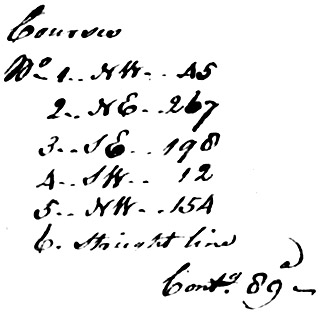 Courses
No 1.. NW.. 45
2.. NE.. 267
3.. SE.. 198
4.. SW.. 12
5.. NW.. 154
6. Straight line
Contd. 89a